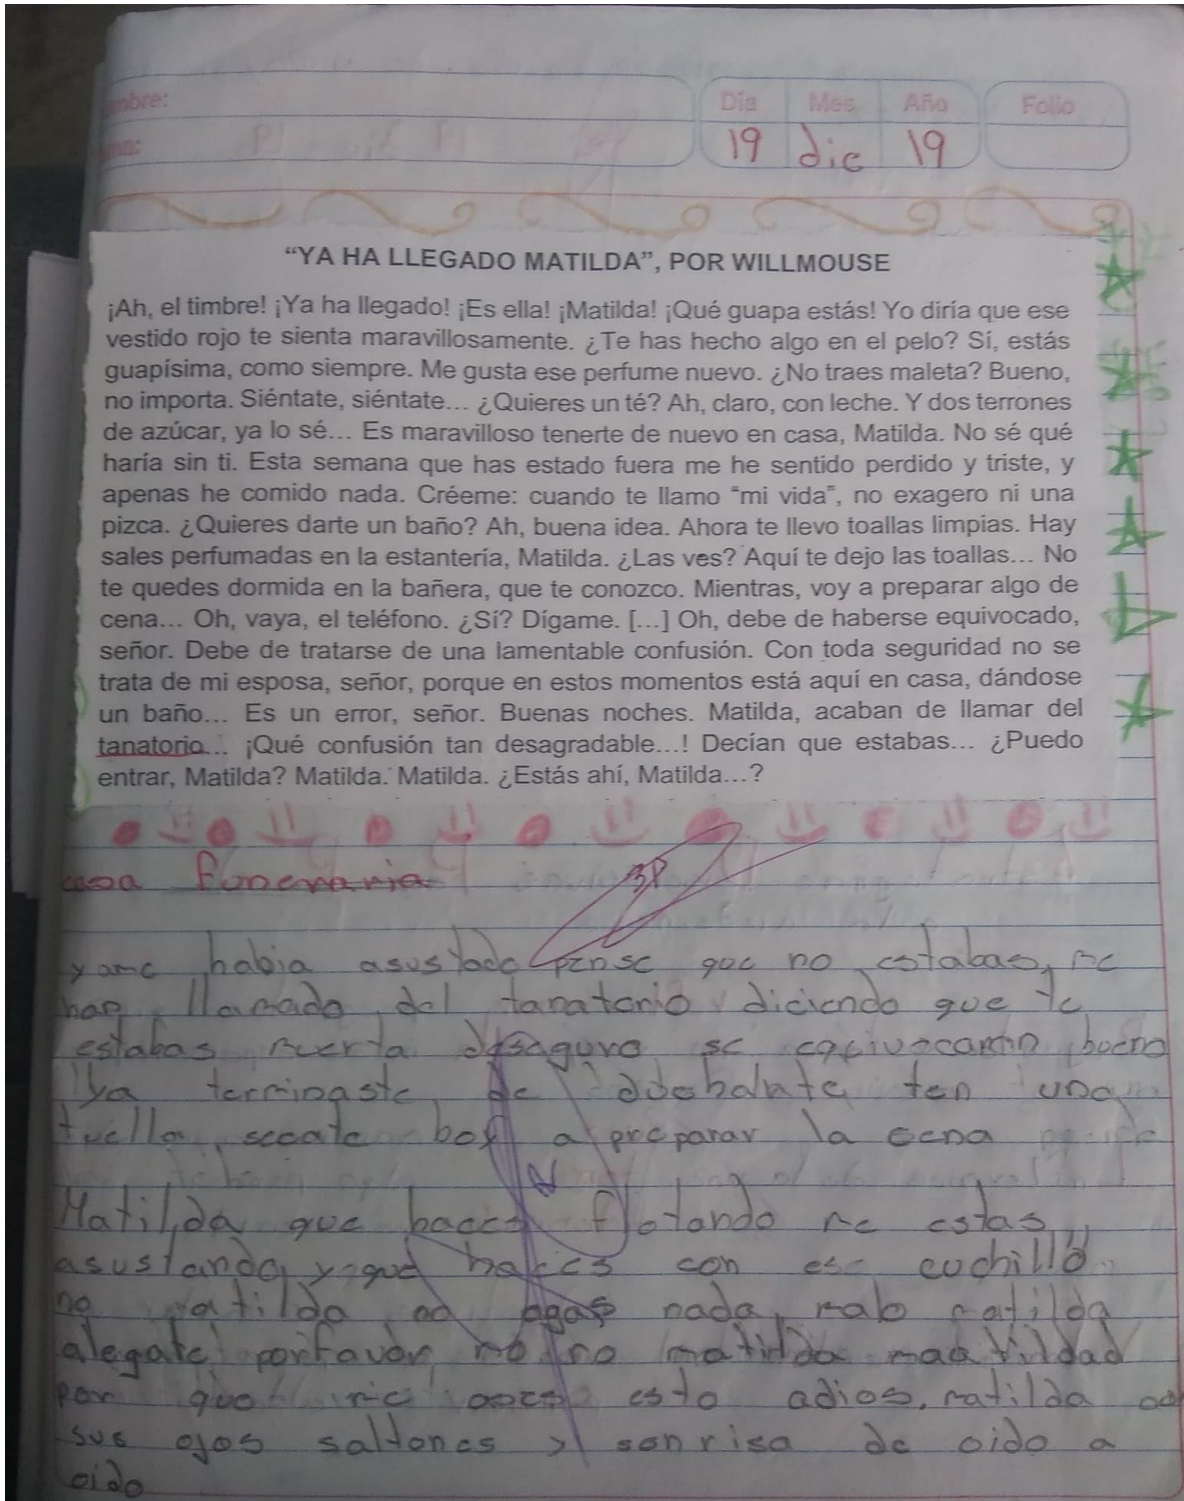 mbre:
Día Mes Año Folio
19 dic 19
"YA HA LLEGADO MATILDA", POR WILLMOUSE
¡Ah, el timbre! ¡Ya ha llegado! ¡Es ella! ¡Matilda! ¡Qué guapa estás! Yo diría que ese
vestido rojo te sienta maravillosamente. ¿Te has hecho algo en el pelo? Sí, estás
guapísima, como siempre. Me gusta ese perfume nuevo. ¿No traes maleta? Bueno,
no importa. Siéntate, siéntate... ¿Quieres un té? Ah, claro, con leche. Y dos terrones
de azúcar, ya lo sé... Es maravilloso tenerte de nuevo en casa, Matilda. No sé qué
haría sin ti. Esta semana que has estado fuera me he sentido perdido y triste, y
apenas he comido nada. Créeme: cuando te llamo "mi vida", no exagero ni una
pizca. ¿Quieres darte un baño? Ah, buena idea. Ahora te llevo toallas limpias. Hay
sales perfumadas en la estantería, Matilda. ¿Las ves? Aquí te dejo las toallas... No
te quedes dormida en la bañera, que te conozco. Mientras, voy a preparar algo de
cena... Oh, vaya, el teléfono. ¿Sí? Dígame. [...] Oh, debe de haberse equivocado,
señor. Debe de tratarse de una lamentable confusión. Con toda seguridad no se
trata de mi esposa, señor, porque en estos momentos está aquí en casa, dándose
un baño... Es un error, señor. Buenas noches. Matilda, acaban de llamar del
tanatorio... ¡Qué confusión tan desagradable...! Decían que estabas... ¿Puedo
entrar, Matilda? Matilda. Matilda. ¿Estás ahí, Matilda...?
casa funeraria
38
yame habia asustado pense que no estabas, me
han llamado del tanatorio diciendo que te
estabas muerta desaguro se eqivocaron bueno
ya terminaste de ten una
tuella secate boy a preparar la cena
Matilda que haces flotando me estas
asustando y que haces con ese cuchillo
no matilda no agas nada, matilda
alegate porfavor no no matilda
por que me esto adios. matilda
sus ojos saltones y sonrisa de oido a
oido